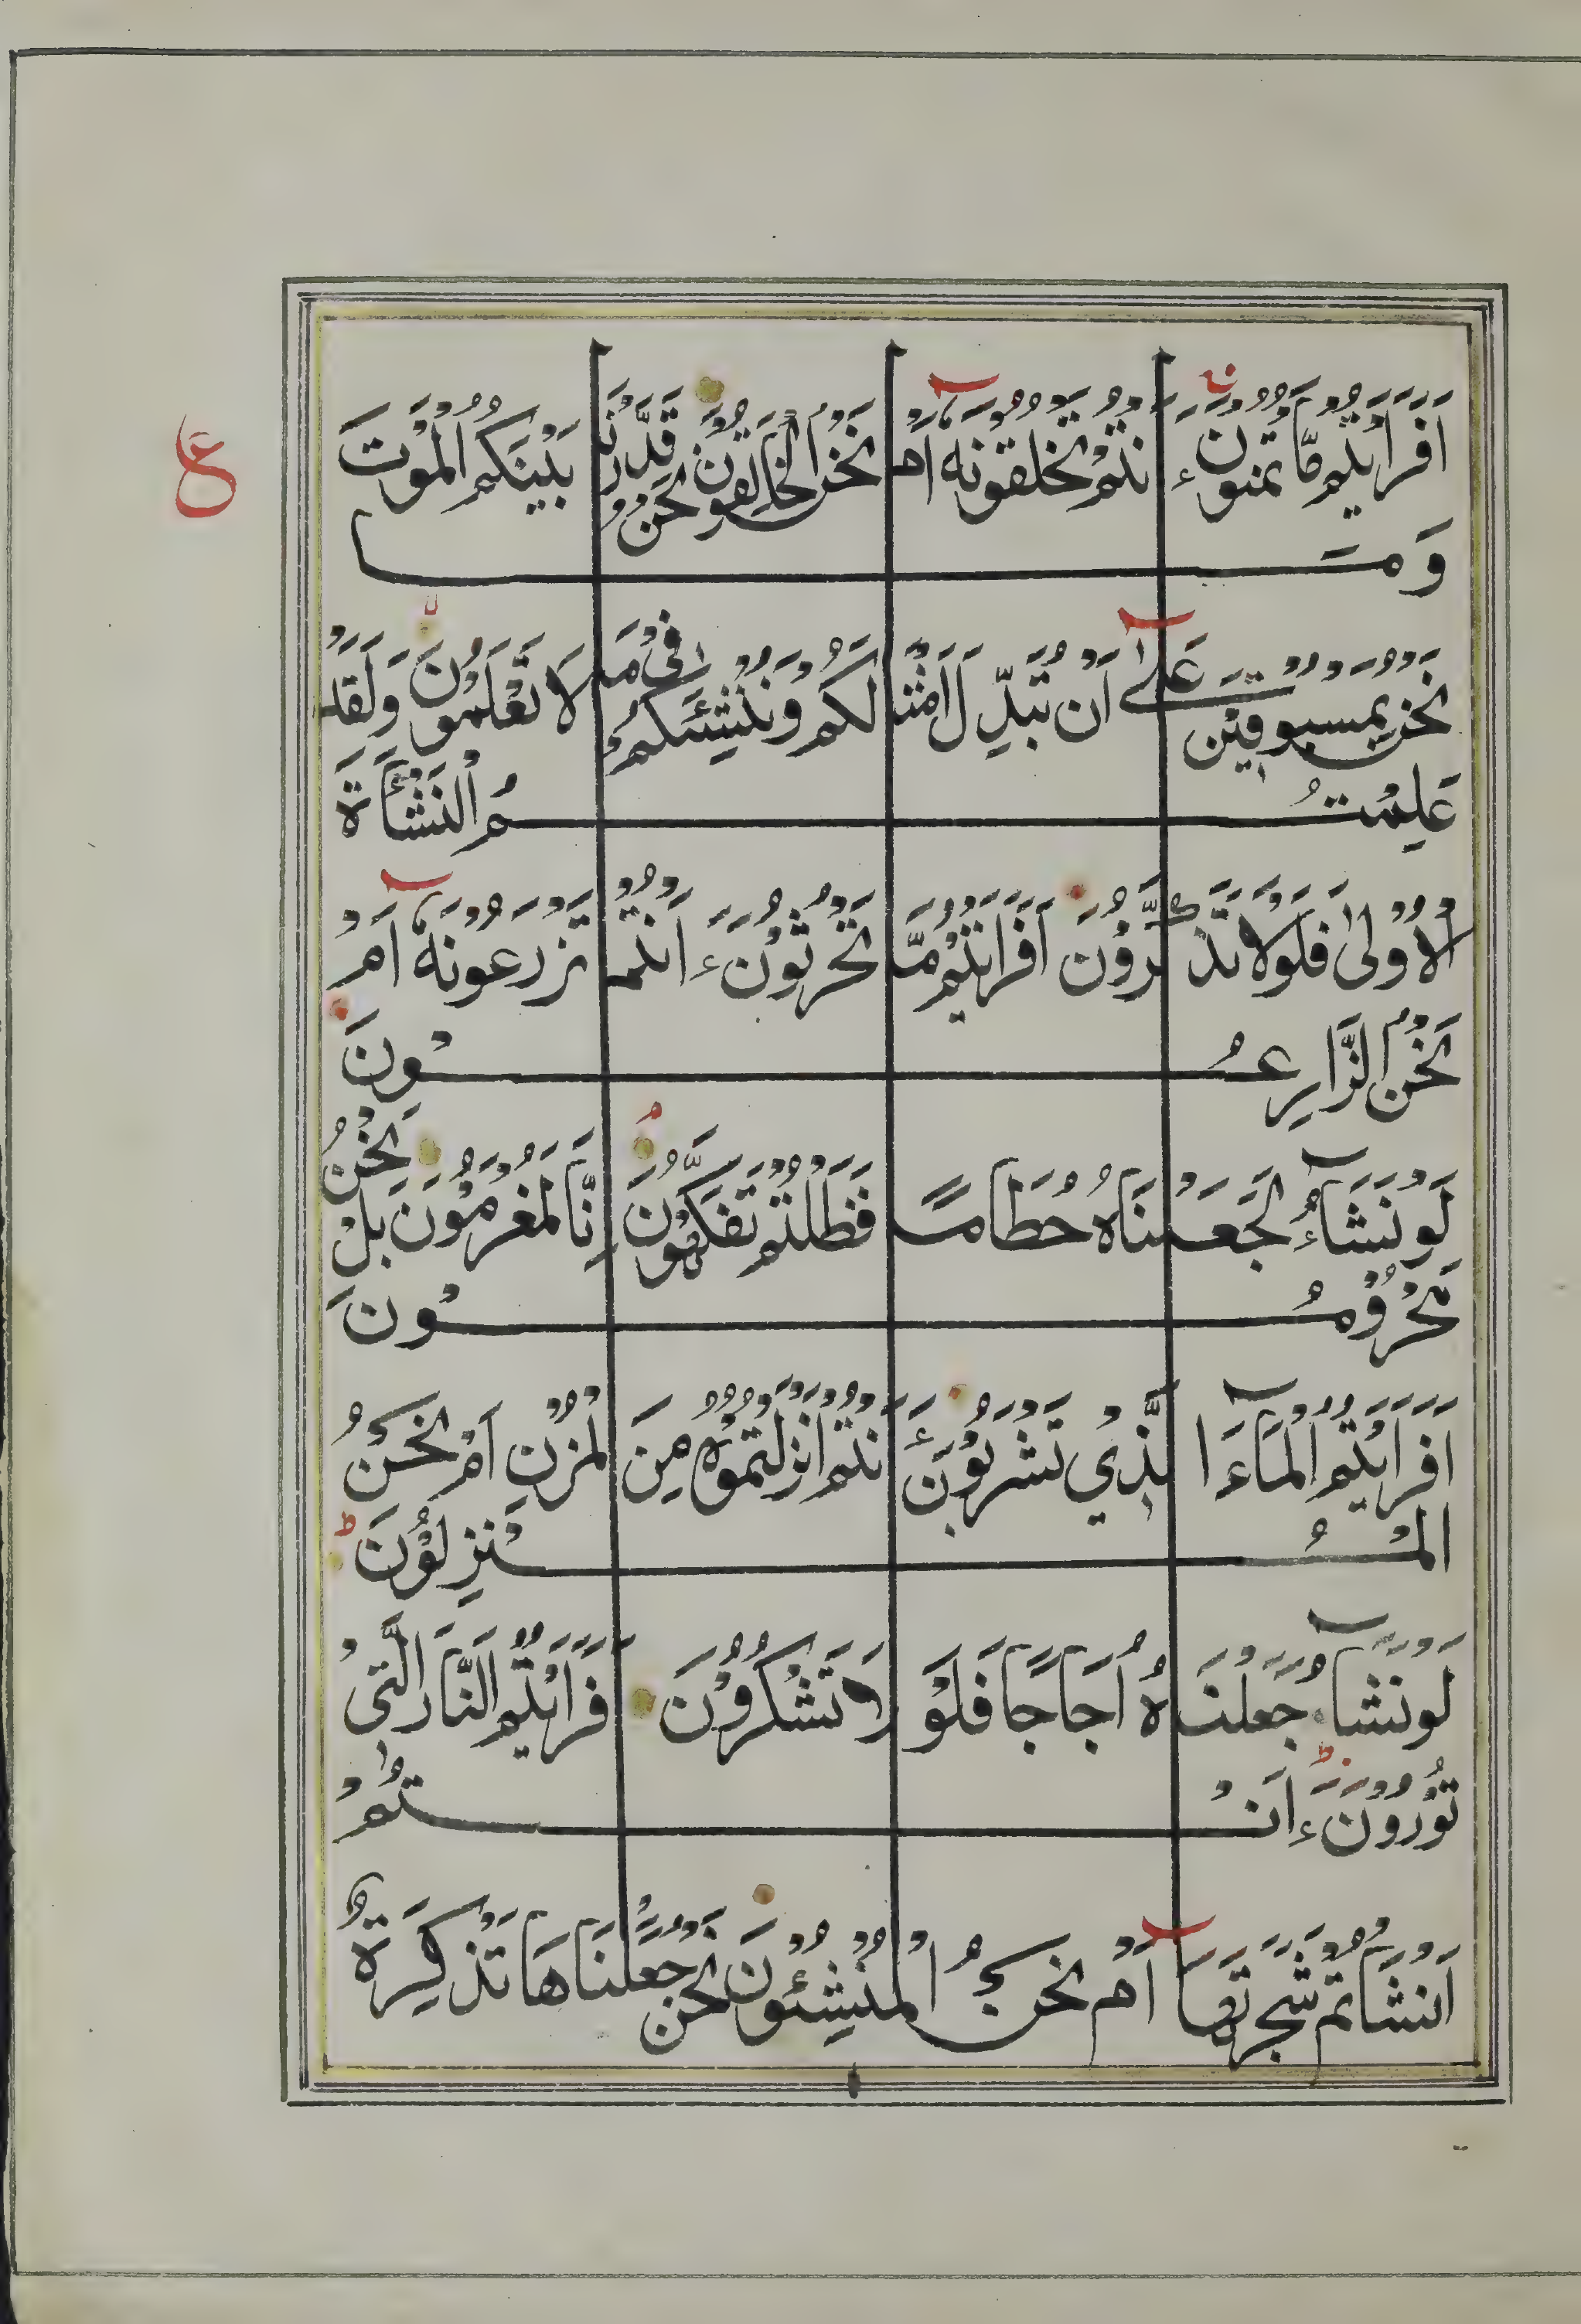 اَفَرَاَيْتُمْ مَّا تُمْنُوْنَ ءَاَنْتُمْ تَخْلُقُوْنَهٗ اَمْ نَحْنُ الْخَالِقُوْنَ نَحْنُ قَدَّرْنَا بَيْنَكُمُ الْمَوْتَ
وَمَا
نَحْنُ بِمَسْبُوْقِيْنَ عَلٰى اَنْ نُبَدِّلَ اَمْثَالَكُمْ وَنُنْشِئَكُمْ فِيْ مَا لَا تَعْلَمُوْنَ وَلَقَدْ
عَلِمْتُمُ النَّشْاَةَ
الْاُوْلٰى فَلَوْلَا تَذَكَّرُوْنَ اَفَرَاَيْتُمْ مَّا تَحْرُثُوْنَ ءَاَنْتُمْ تَزْرَعُوْنَهٗ اَمْ
نَحْنُ الزَّارِعُوْنَ
لَوْ نَشَاءُ لَجَعَلْنَاهُ حُطَامًا فَظَلْتُمْ تَفَكَّهُوْنَ اِنَّا لَمُغْرَمُوْنَ بَلْ نَحْنُ
مَحْرُوْمُوْنَ
اَفَرَاَيْتُمُ الْمَاءَ الَّذِيْ تَشْرَبُوْنَ ءَاَنْتُمْ اَنْزَلْتُمُوْهُ مِنَ الْمُزْنِ اَمْ نَحْنُ
الْمُنْزِلُوْنَ
لَوْ نَشَاءُ جَعَلْنَاهُ اُجَاجًا فَلَوْلَا تَشْكُرُوْنَ اَفَرَاَيْتُمُ النَّارَ الَّتِيْ
تُوْرُوْنَ ءَاَنْتُمْ
اَنْشَاْتُمْ شَجَرَتَهَا اَمْ نَحْنُ الْمُنْشِئُوْنَ نَحْنُ جَعَلْنَاهَا تَذْكِرَةً
ع